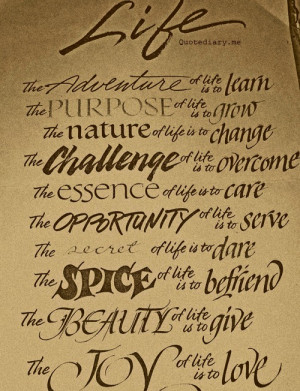 Life
Quotediary.me
The Adventure of life is to learn
The PURPOSE of life is to grow
The nature of life is to change
The Challenge of life is to overcome
The essence of life is to care
The OPPORTUNITY of life is to serve
The secret of life is to dare
The SPICE of life is to befriend
The BEAUTY of life is to give
The JOY of life is to love